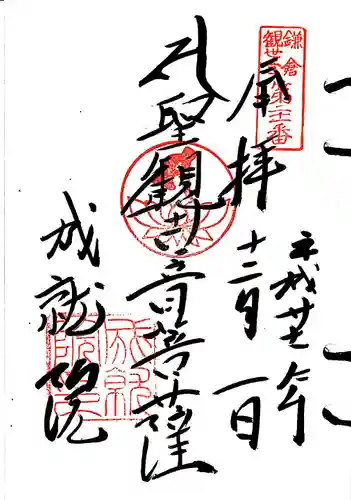 鎌倉
観世音第廿一番
奉拝
平成廿七年
十二月一日
聖観世音菩薩
成就院
成就
院印